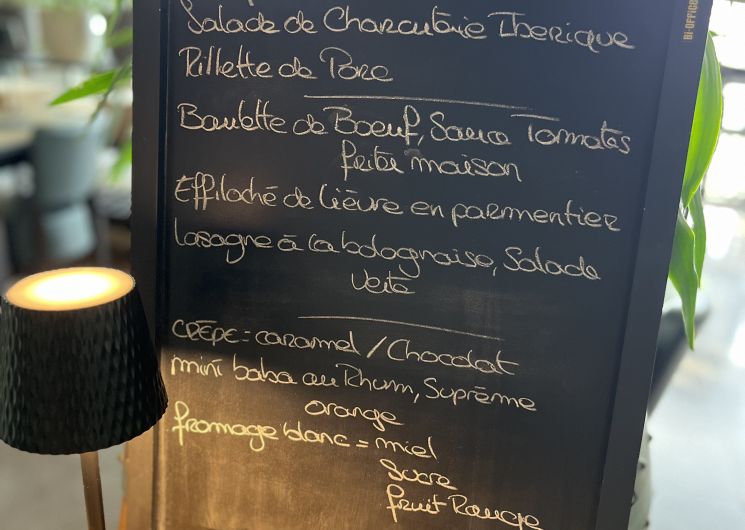 Salade de Charcuterie Iberique
Rillette de Porc
Boulette de Boeuf, Sauce Tomates
faite maison
Effiloché de lièvre en parmentier
Lasagne à la bolognaise, Salade
Verte
CRÊPE = caramel / Chocolat
mini baba au Rhum, Suprême
orange
fromage blanc = miel
Sucre
fruit Rouge
BI-OFFICE